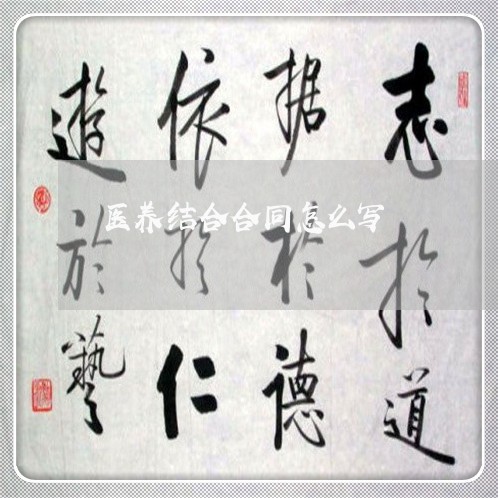 志於道
据於德
依於仁
遊於藝
医养结合合同怎么写